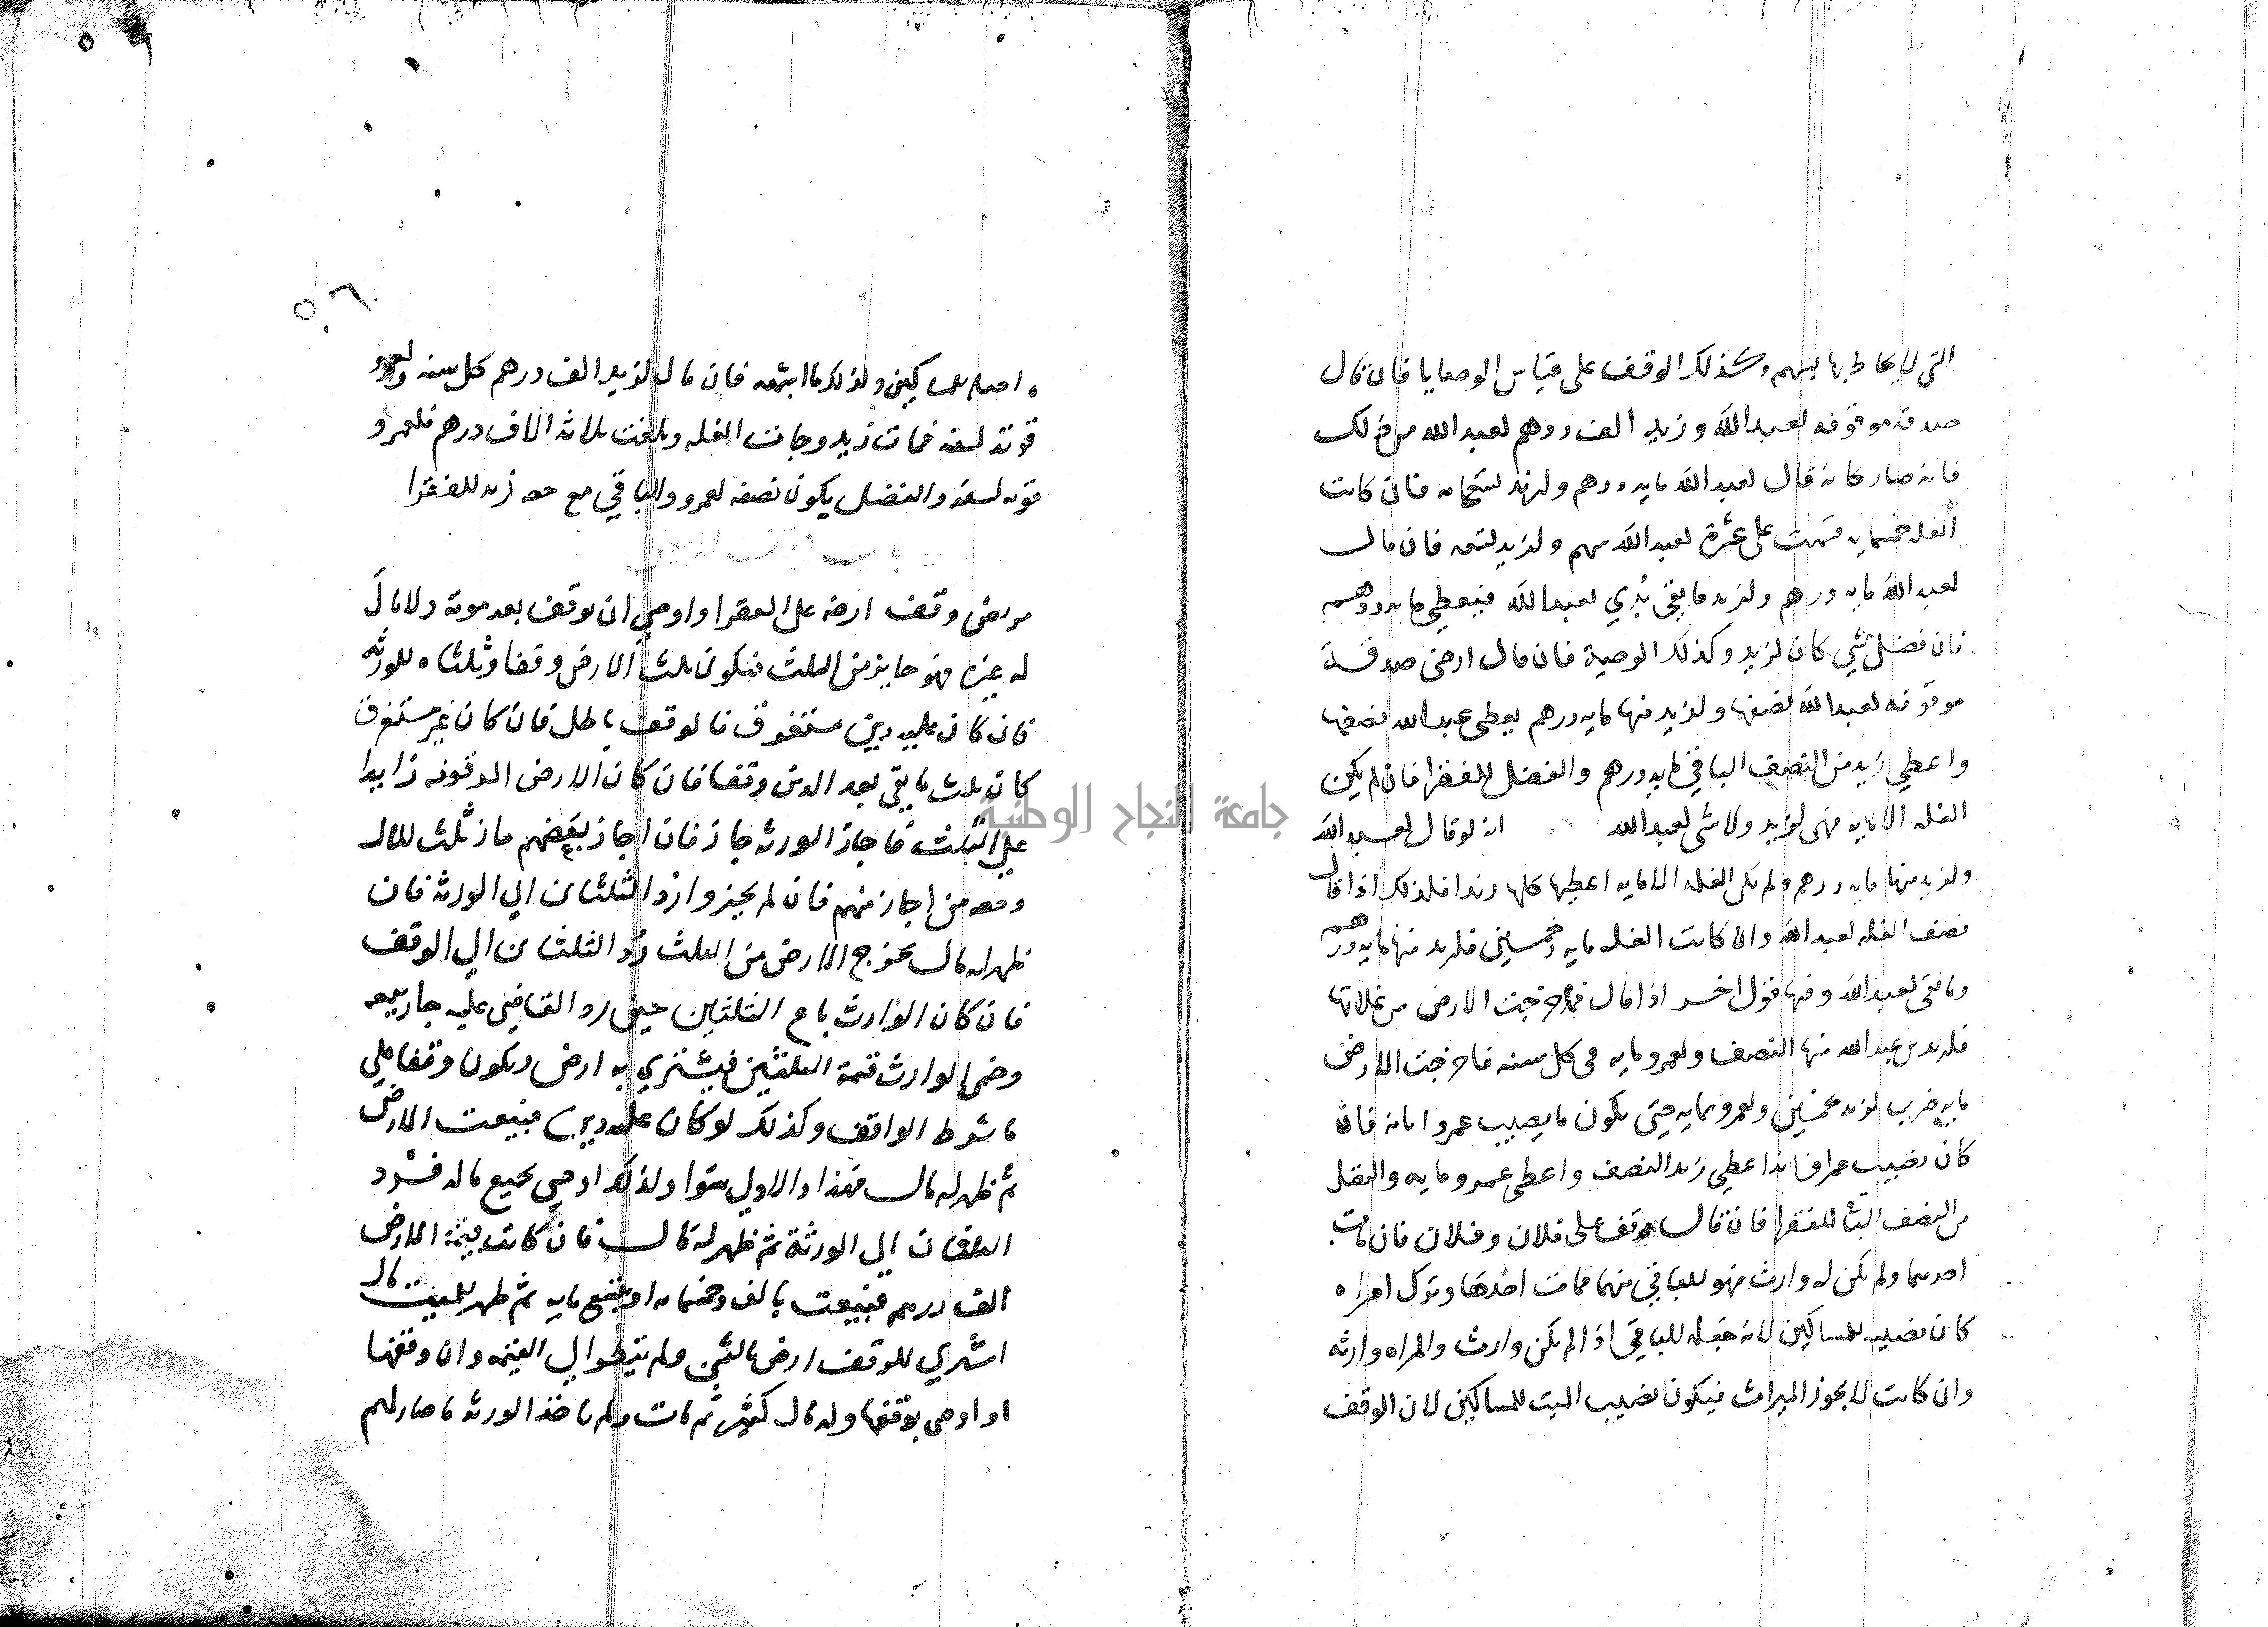 التي لا يحاط بها بينهم وكذلك الوقف على قياس الوصايا فان قال
صدقه موقوفه لعبد الله وزيد الف درهم لعبد الله من ذلك
فانه صار كانه قال لعبد الله مايه درهم ولزيد تسعمايه فان كانت
الغله خمسمايه قسمت على عشرة لعبد الله سهم ولزيد تسعه فان قال
لعبد الله مايه درهم ولزيد ما بقي بُدِي لعبد الله فيعطى مايه درهم
فان فضل شي كان لزيد وكذلك الوصية فان قال ارضي صدقة
موقوفه لعبد الله نصفها ولزيد منها مايه درهم يعطى عبد الله نصفها
واعطي زيد من النصف الباقي مايه درهم والفضل للفقرا فان لم يكن
الغله الا مايه فهى لزيد ولا شى لعبد الله انه لو قال لعبد الله
ولزيد منها مايه درهم ولم تكن الغله الا مايه اعطيها كلها زيدا فلذلك اذا قال
نصف الغله لعبد الله وان كانت الغله مايه وخمسين فلزيد منها مايه درهم
وما بقى لعبد الله وفيها قول اخر اذا قال فما اخرجت الارض من غلاتها
فلزيد بن عبد الله منها النصف ولعمرو مايه في كل سنه فاخرجت الارض
مايه ضرب لزيد بخمسين ولعمرو بمايه حتى يكون ما يصيب عمرو امانه فان
كان نصيب عمرا فاذا اعطي زيد النصف واعطى عمرو مايه والفضل
من النصف الباقي للفقرا فان قال وقف على فلان وفلان فان مات
احدهما ولم يكن له وارث فهو للباقي منهما فمات احدهما وترك امراه
كان نصيبه للمساكين لانه جعله للباقي اذا لم يكن وارث والمراه وارثه
وان كانت لا يجوز الميراث فيكون نصيب الميت للمساكين لان الوقف
٥٦
للمساكين وكذلك ما اشبهه فان قال لزيد الف درهم كل سنه ولعمرو
قوته لسنه فمات زيد وجات الغله وبلغت ثلاثه الاف درهم فلعمرو
قوته لسنه والفضل يكون نصفه لعمرو والباقي مع حصه زيد للفقرا
مريض وقف ارضه على الفقرا واوصي ان يوقف بعد موته ولا مال
له غيره فهو جايز من الثلث فيكون ثلث الارض وقفا وثلثاه للورثه
فان كان عليه دين مستغرق فالوقف باطل فان كان غير مستغرق
كان ثلث ما بقي بعد الدين وقفا فان كان الارض الموقوفه زايدا
علي الثلث فاجاز الورثه جاز فان اجاز بعضهم جاز ثلث المال
وحصه من اجاز منهم فان لم يجيزوا رد الثلثان الي الورثه فان
ظهر له مال يخرج الارض من الثلث رُد الثلثان الي الوقف
فان كان الوارث باع الثلثين حين رد القاضي عليه جاز بيعه
وضمن الوارث قيمة الثلثين فيشتري به ارض ويكون وقفا علي
ما شرط الواقف وكذلك لو كان عليه دين فبيعت الارض
ثم ظهر له مال فهذا والاول سوا وكذلك لو اوصي بجميع ماله فرد
الثلثان الي الورثة ثم ظهر له مال فان كانت قيمة الارض
الف درهم فبيعت بالف وخمسمايه او بتسع مايه ثم ظهر للميت مال
اشتري للوقف ارض بالثمن ولم ينظر الي القيمه وان وقفها
او اوصى بوقفها وله مال كثير ثم مات ولم ياخذ الورثه ما صار لهم
جامعة النجاح الوطنية